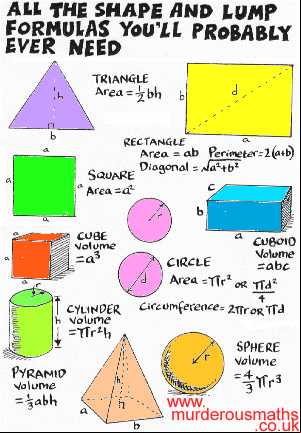 ALL THE SHAPE AND LUMP
FORMULAS YOU'LL PROBABLY
EVER NEED
TRIANGLE
Area = ½bh
h
b
a
b
d
b
a
RECTANGLE
Area = ab Perimeter = 2(a+b)
Diagonal = √a²+b²
a
a
a
SQUARE
Area = a²
r
c
b
a
CUBOID
Volume
= abc
a
a
a
CUBE
Volume
= a³
d
CIRCLE
Area = πr² or πd²/4
Circumference = 2πr or πd
r
h
CYLINDER
Volume
= πr²h
PYRAMID
Volume
= ⅓abh
h
a
b
r
SPHERE
Volume
= 4/3 πr³
www.
murderousmaths
.co.uk